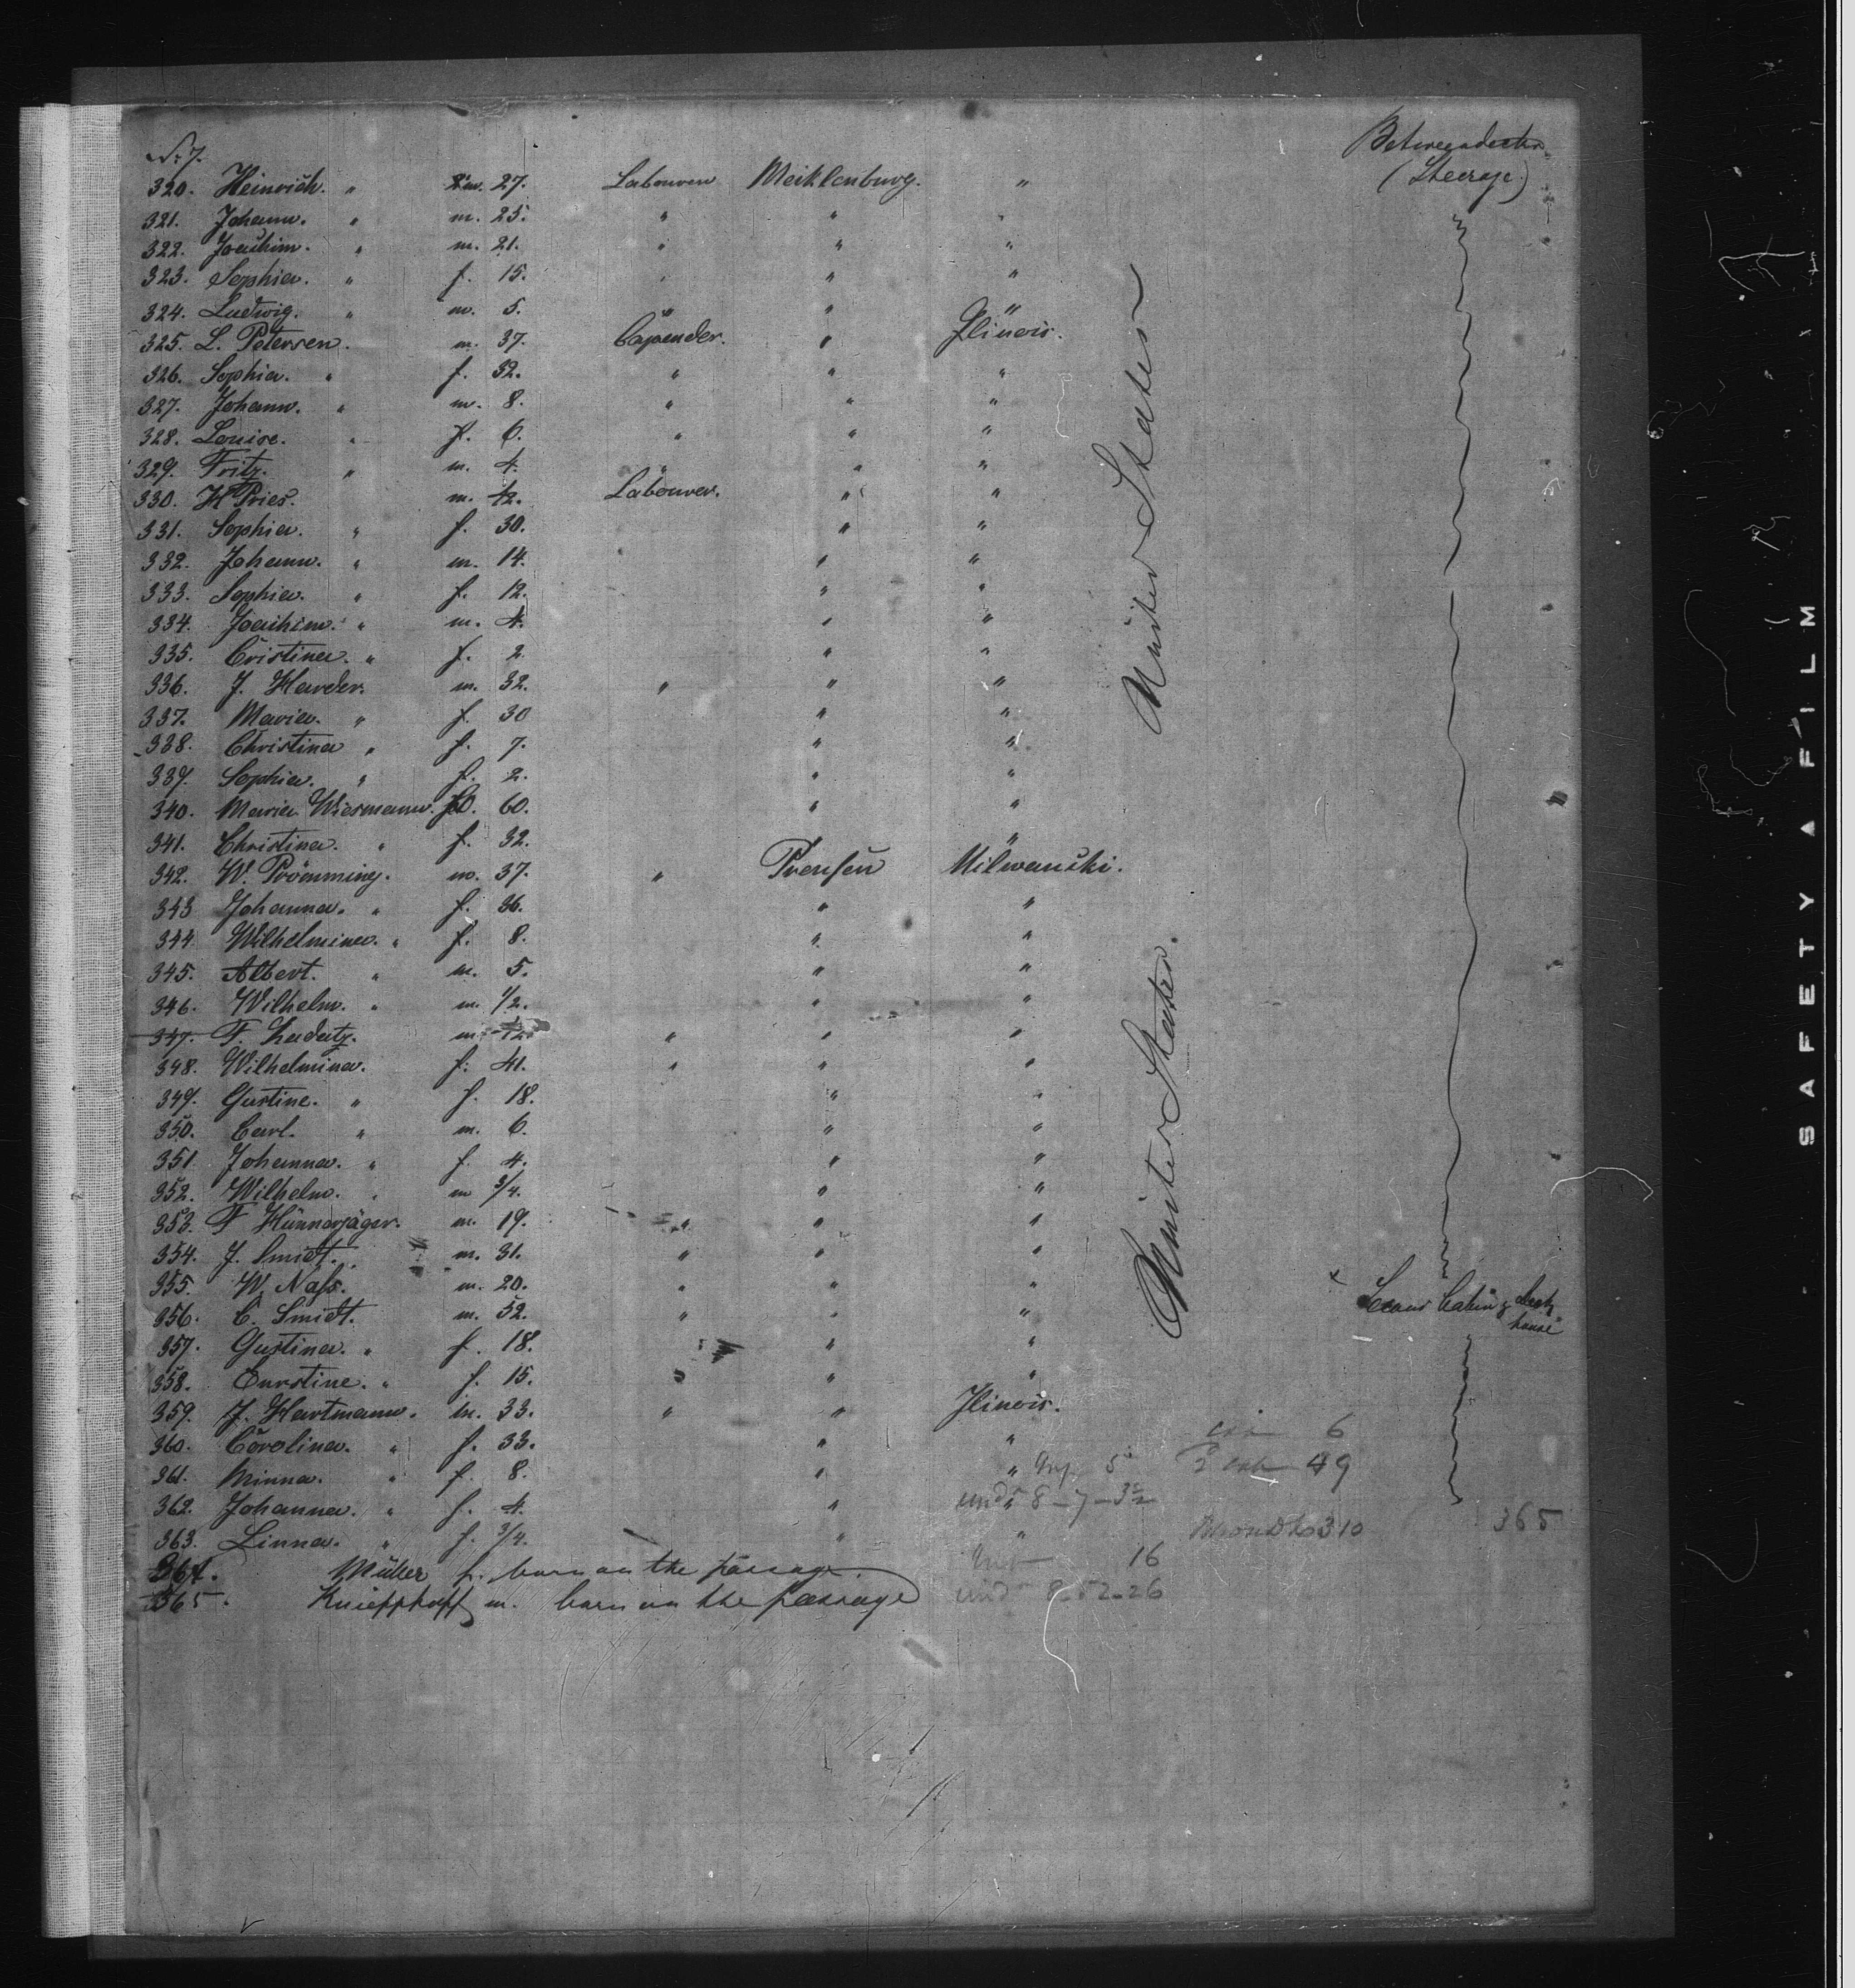 No 7. Betweendecks
320. Heinrich. " m. 27. Labourer Meiklenburg. " (Steerage.)
321. Johann. " m. 25. " " "
322. Joachim. " m. 21. " " "
323. Sophia. " f. 15. " " "
324. Ludwig. " m. 5. " " "
325. L. Petersen. m. 37. Capender. " Ilinois.
326. Sophia. " f. 32. " " "
327. Johann. " m. 8. " " "
328. Louise. " f. 6. " " "
329. Fritz. " m. 4. " " "
330. H Pries. m. 42. Labourer. " "
331. Sophia. " f. 30. " "
332. Johann. " m. 14. " "
333. Sophia. " f. 12. " "
334. Joachim. " m. 4. " "
335. Cristina. " f. 2. " "
336. J. Harder. m. 32. " " "
337. Maria. " f. 30 " "
338. Christina " f. 7. " "
339. Sophia. " f. 2. " "
340. Maria Wiesmann. f. 60. " "
341. Christina. " f. 32. " "
342. W. Prömming. m. 37. " Preußen Milwauski.
343 Johanna. " f. 36. " "
344 Wilhelmina. " f. 8. " "
345. Albert. " m. 5. " "
346. Wilhelm. " m. 1/2. " "
347. F. Radatz. m. 42. " " "
348. Wilhelmina. f. 41. " " "
349. Gustine. " f. 18. " "
350. Carl. " m. 6. " "
351 Johanna. " f. 4. " "
352. Wilhelm. " m 3/4. " "
353. F Hünnerjäger. m. 19. " " "
354. J. Smidt. m. 31. " " "
355. W. Nass. m. 20. " " "
356. C. Smidt. m. 52. " " "
357. Gustina. " f. 18. " "
358. Curstine. " f. 15. " " "
359. J. Hartmann. m. 33. " " Ilinois.
360. Carolina. " f. 33. " " 6
361. Minna. " f. 8. " " 49
362. Johanna. " f. 4. " "
363. Linna. " f. 3/4. " " 310 365
364. Müller f. born on the passage 16
365. Kniephoff m. born on the passage
United States
United States.
Cabin
house
SAFETY A FILM